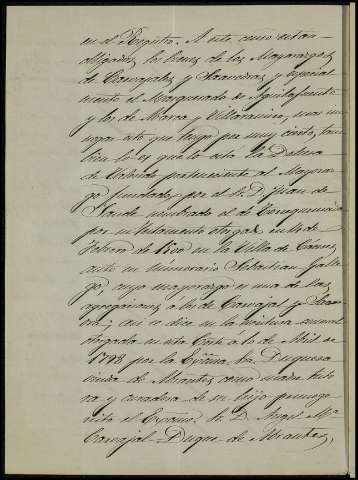 en el Registro. A este censo están
obligados los bienes de los Mayorazgos
de Carvajales y Saavedras y especial
mente el Marquesado de Aguilafuente
y los de Abarca y Villaramiro, mas
que tengo por muy cierto, tam
bien lo es que lo está la Dehesa
de perteneciente al Mayoraz
go fundado por el Sr. D. Juan de
Sande nombrado el de
por su testamento otorgado en 14 de
Febrero de en la Villa de Cáceres
ante su Numerario Sebastian
cuyo mayorazgo es uno de los
agregaciones á los de Carvajal y
así se dice en la escritura censual
otorgada en esta Corte á 10 de Abril de
1798 por la Exma. Sra. Duquesa
viuda de Abrantes como madre tuto
ra y curadora de su hijo primogé
nito el Excmo. Sr. D. Angel Mª
Carvajal Duque de Abrantes,